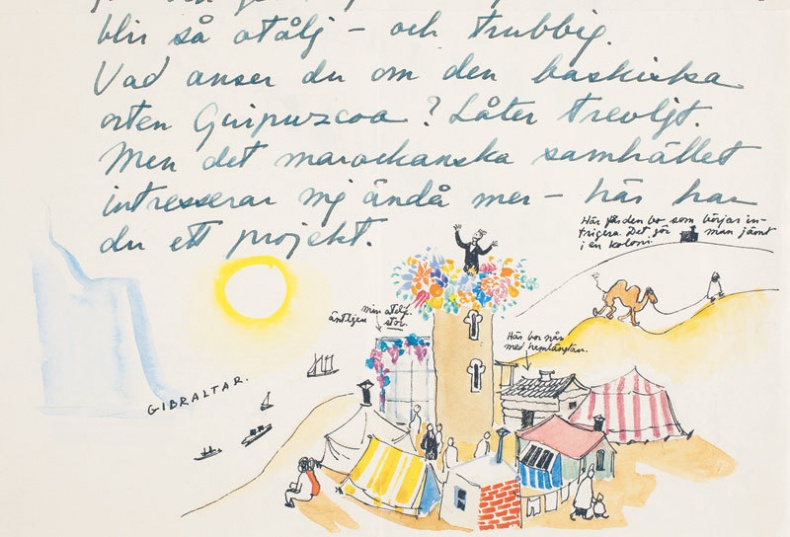 blir så otålj – och trubbig.
Vad anser du om den baskiska
orten Guipuzcoa? Låter trevligt.
Men det marockanska samhället
intresserar mig ändå mer – här har
du ett projekt.
Här får den bo som börjar in-
trigera. Det gör man jämt
i en koloni.
min ateljé
äntligen stor.
Här bor nån
med hemlängtan.
GIBRALTAR.